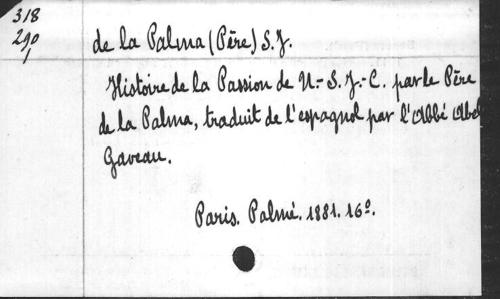 318
290
1
de la Palma (Père) S.J.
Histoire de la Passion de N.-S.-J.-C. par le Père
de la Palma, traduit de l'espagnol par l'Abbé Abel
Gaveau.
Paris. Palmé. 1881. 16º.